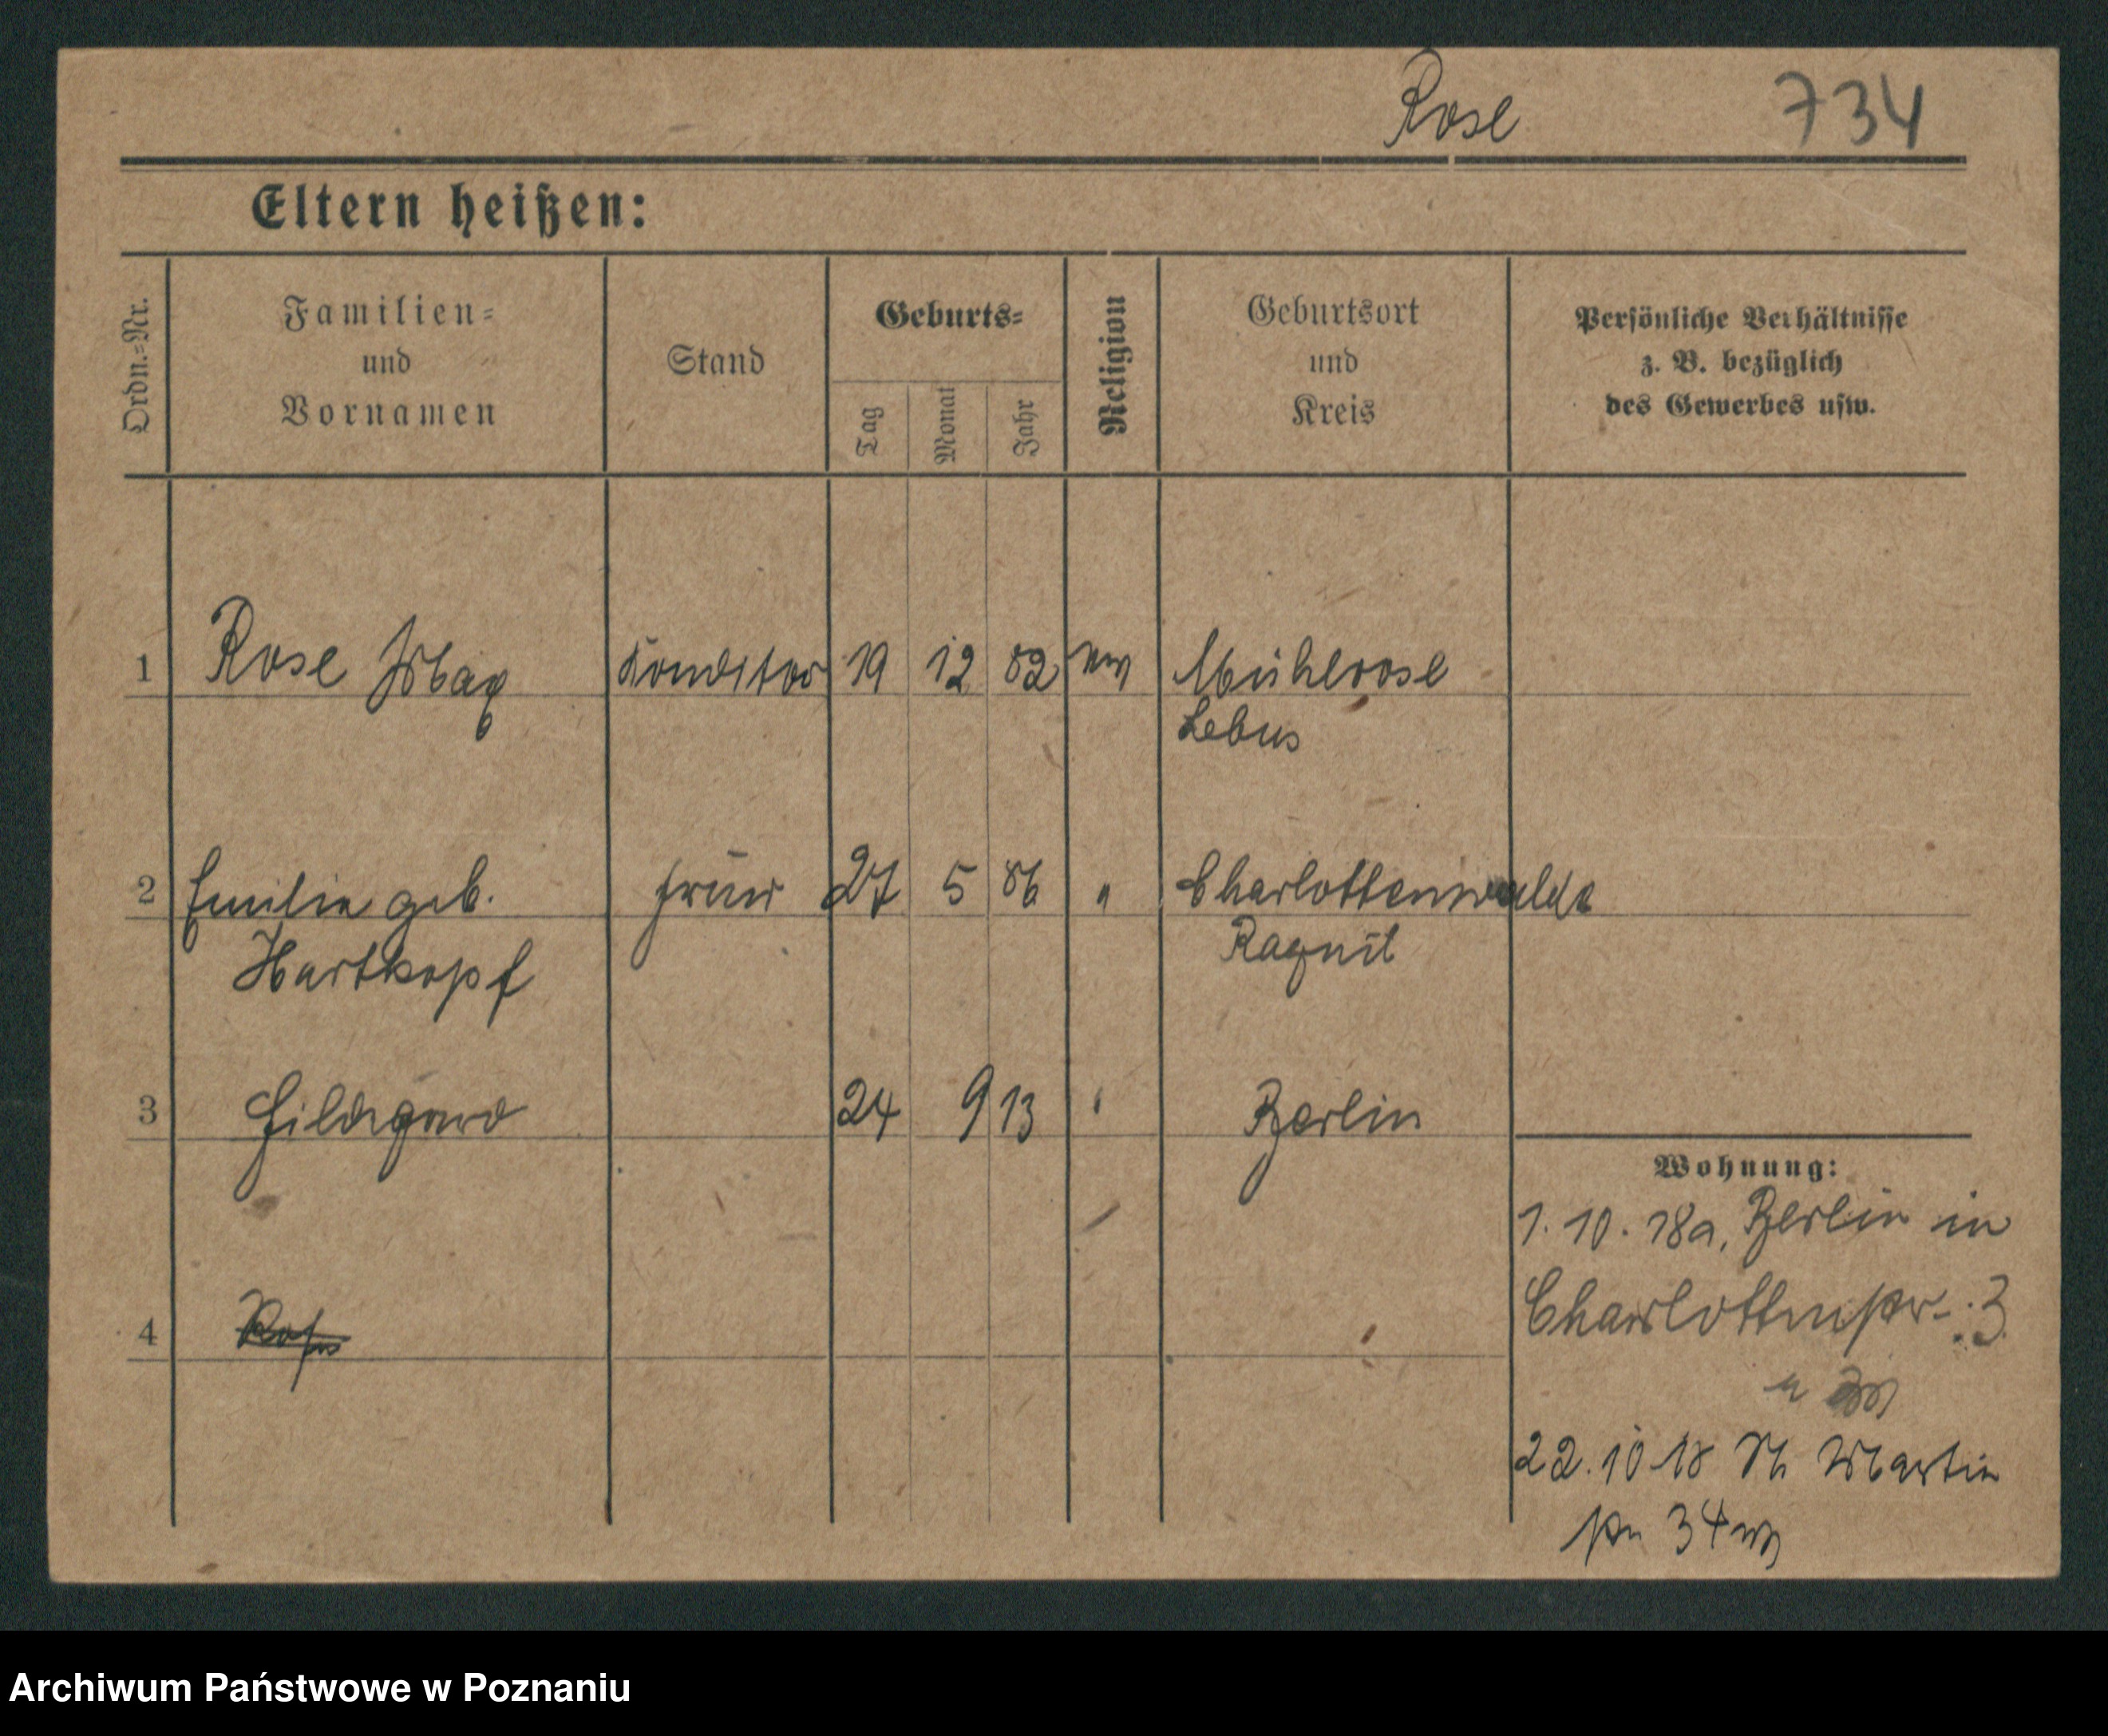 Rose 734
Eltern heißen:
Ordn.=Nr.
Familien=
und
Vornamen
Stand
Geburts=
Tag
Monat
Jahr
Religion
Geburtsort
und
Kreis
Persönliche Verhältnisse
z. B. bezüglich
des Gewerbes usw.
1 Rose Max Konditor 19 12 82 Mühlrose
Lebus
2 Emilie geb. Frau 27 5 86 " Charlottenwalde
Hartkopf Ragnit
3 Hildegard 24 9 13 " Berlin
Wohnung:
1. 10. 18 a. Berlin in
4 Charlottenstr. 3
22. 10 18 St Martin
str 34
Archiwum Państwowe w Poznaniu